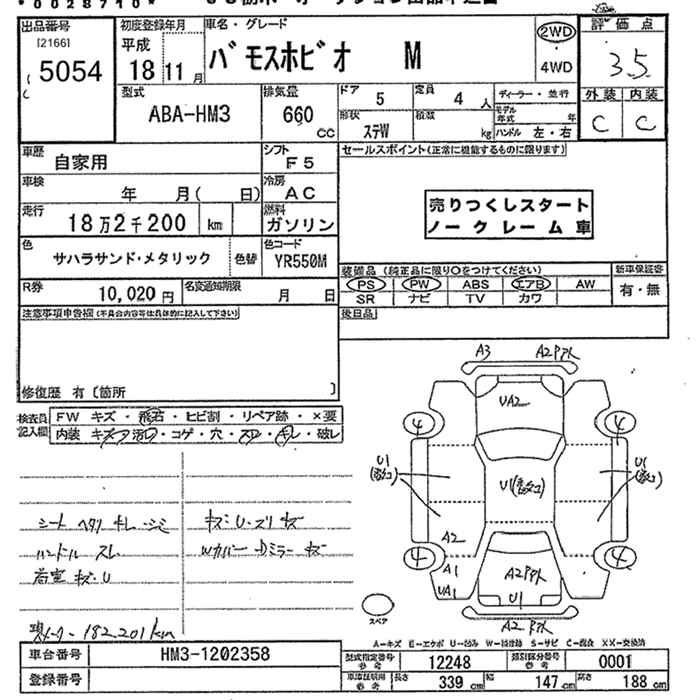 *0028710*
出品番号 初度登録年月 車名・グレード 評価点
[2166] 平成 2WD
5054 18 11月 バモスホビオ M 4WD 3.5
型式 排気量 ドア 5 定員 4人 ディーラー・並行 外装 内装
ABA-HM3 660 cc 形状 ステW 積載 kg モデル年式 年 ハンドル 左・右 C C
車歴 自家用 シフト F5 セールスポイント(正常に機能するものに限ります)
車検 年 月( 日) 冷房 AC
走行 18万2千200 km 燃料 ガソリン 売りつくしスタート
ノークレーム車
色 サハラサンド・メタリック 色替 色コード YR550M
装備品 (純正品に限り○をつけてください) 新車保証書
R券 10,020円 名変通知期限 月 日 PS PW ABS エアB AW 有・無
SR ナビ TV カワ
注意事項申告欄(不具合内容等は具体的に記入して下さい) 後日品
修復歴 有〔箇所 〕
検査員記入欄 FW キズ・飛石・ヒビ割・リペア跡・×要
内装 キズ・汚レ・コゲ・穴・スレ・キレ・破レ
A3 A2
UA2
4 4
U1 U1 U1
A2
4 4
A1
UA1 A2
U1
A2
シート ヘタリ キレ・シミ キズ・U・スリ キズ
ハンドル スレ Wカバー・Dミラー キズ
荷室 キズ・U
182201km
スペア
A―キズ E―エクボ U―凹み W―補修跡 S―サビ C―腐食 XX―交換済
車台番号 HM3-1202358 型式指定番号 参考 12248 類別区分番号 参考 0001
登録番号 車庫証明用 参考 長さ 339 cm 幅 147 cm 高さ 188 cm